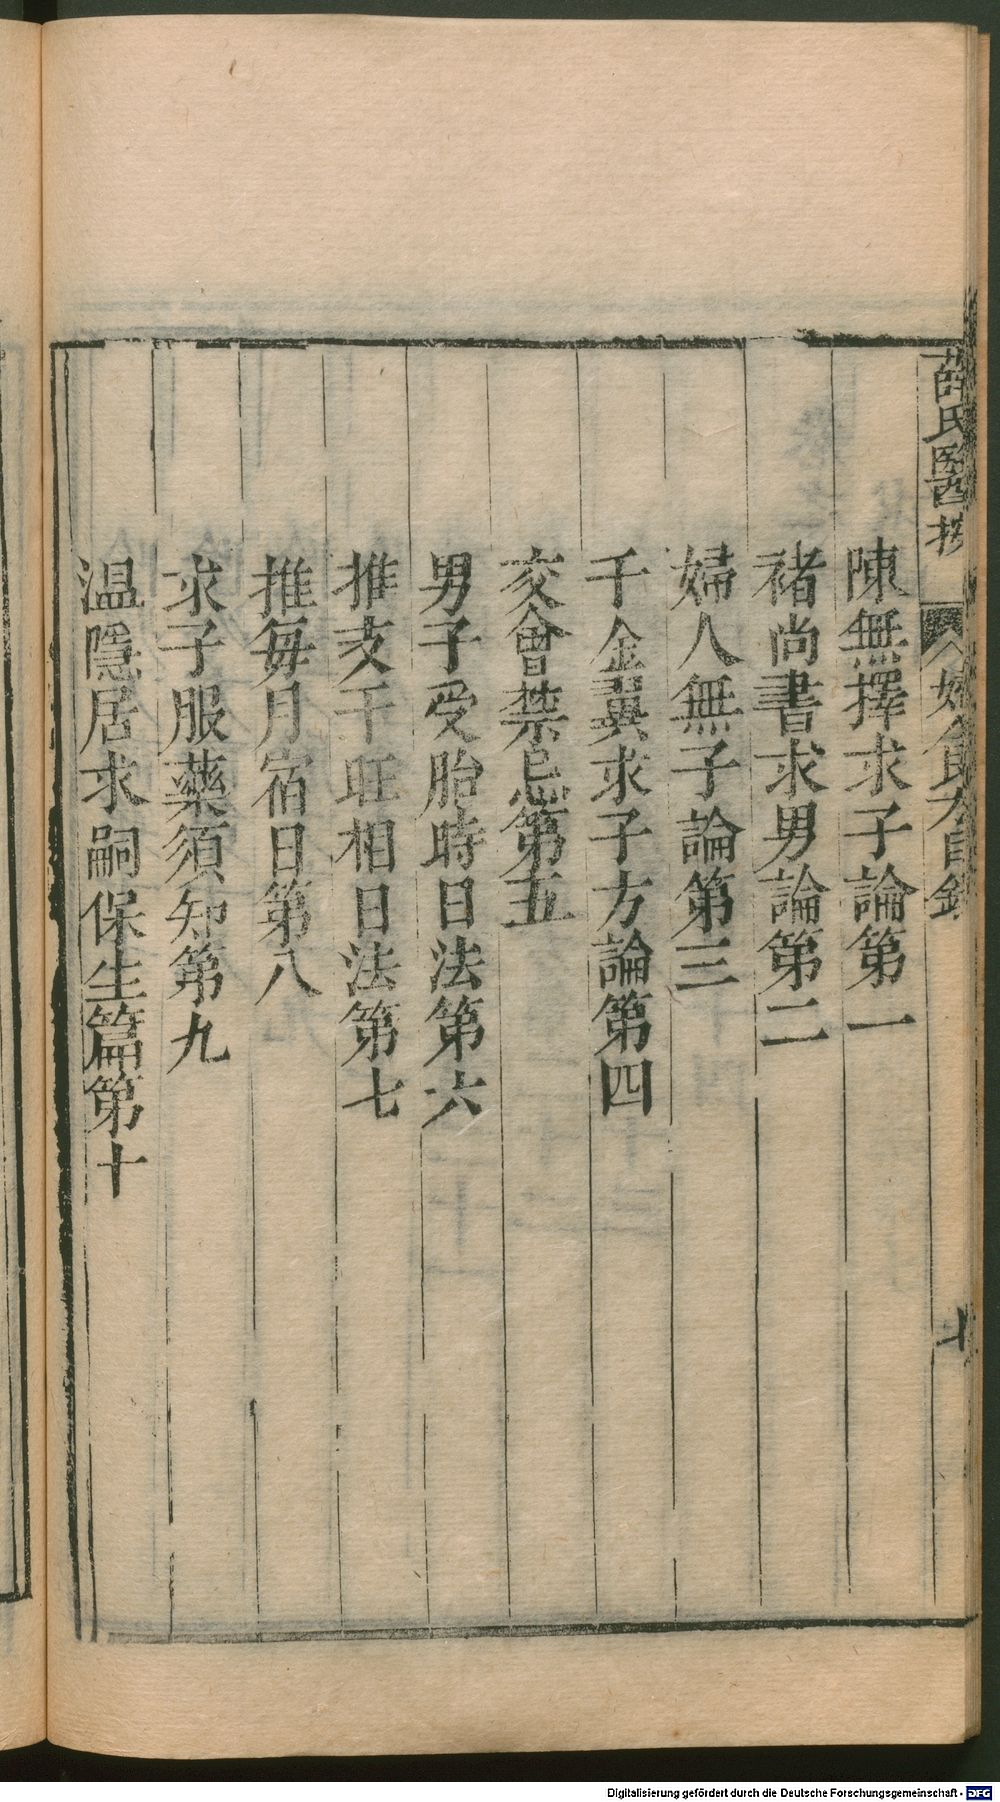 薛氏醫按
婦
目錄
陳無擇求子論第一
褚尚書求男論第二
婦人無子論第三
千金翼求子方論第四
交會禁忌第五
男子受胎時日法第六
推支干旺相日法第七
推每月宿日第八
求子服藥須知第九
温隱居求嗣保生篇第十
Digitalisierung gefördert durch die Deutsche Forschungsgemeinschaft - DFG